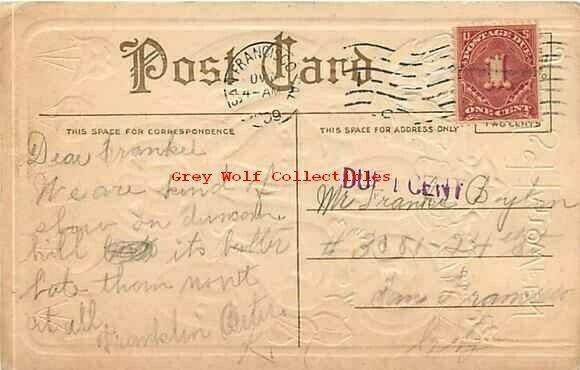 Post Card
SAN FRANCISCO
4-AM
09
U S
POSTAGE DUE
1
ONE CENT
TWO CENTS
THIS SPACE FOR CORRESPONDENCE
THIS SPACE FOR ADDRESS ONLY
Dear Frankel
We are kind of
slow in duncan
hill its better
late then not
at all.
Franklin
Grey Wolf Collectibles
DUE 1 CENT
Mr. Frank
# 3081-24 
San Francisco
Cal